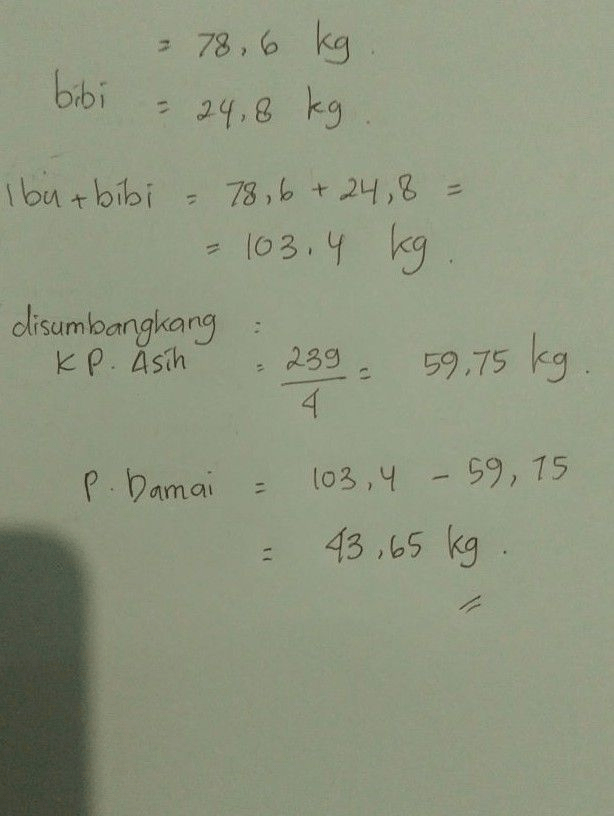 = 78,6 kg.
bibi = 24,8 kg.
Ibu + bibi = 78,6 + 24,8 =
= 103.4 kg.
disumbangkang :
KP. Asih = 239/4 = 59,75 kg.
P. Damai = 103,4 - 59,75
= 43,65 kg.